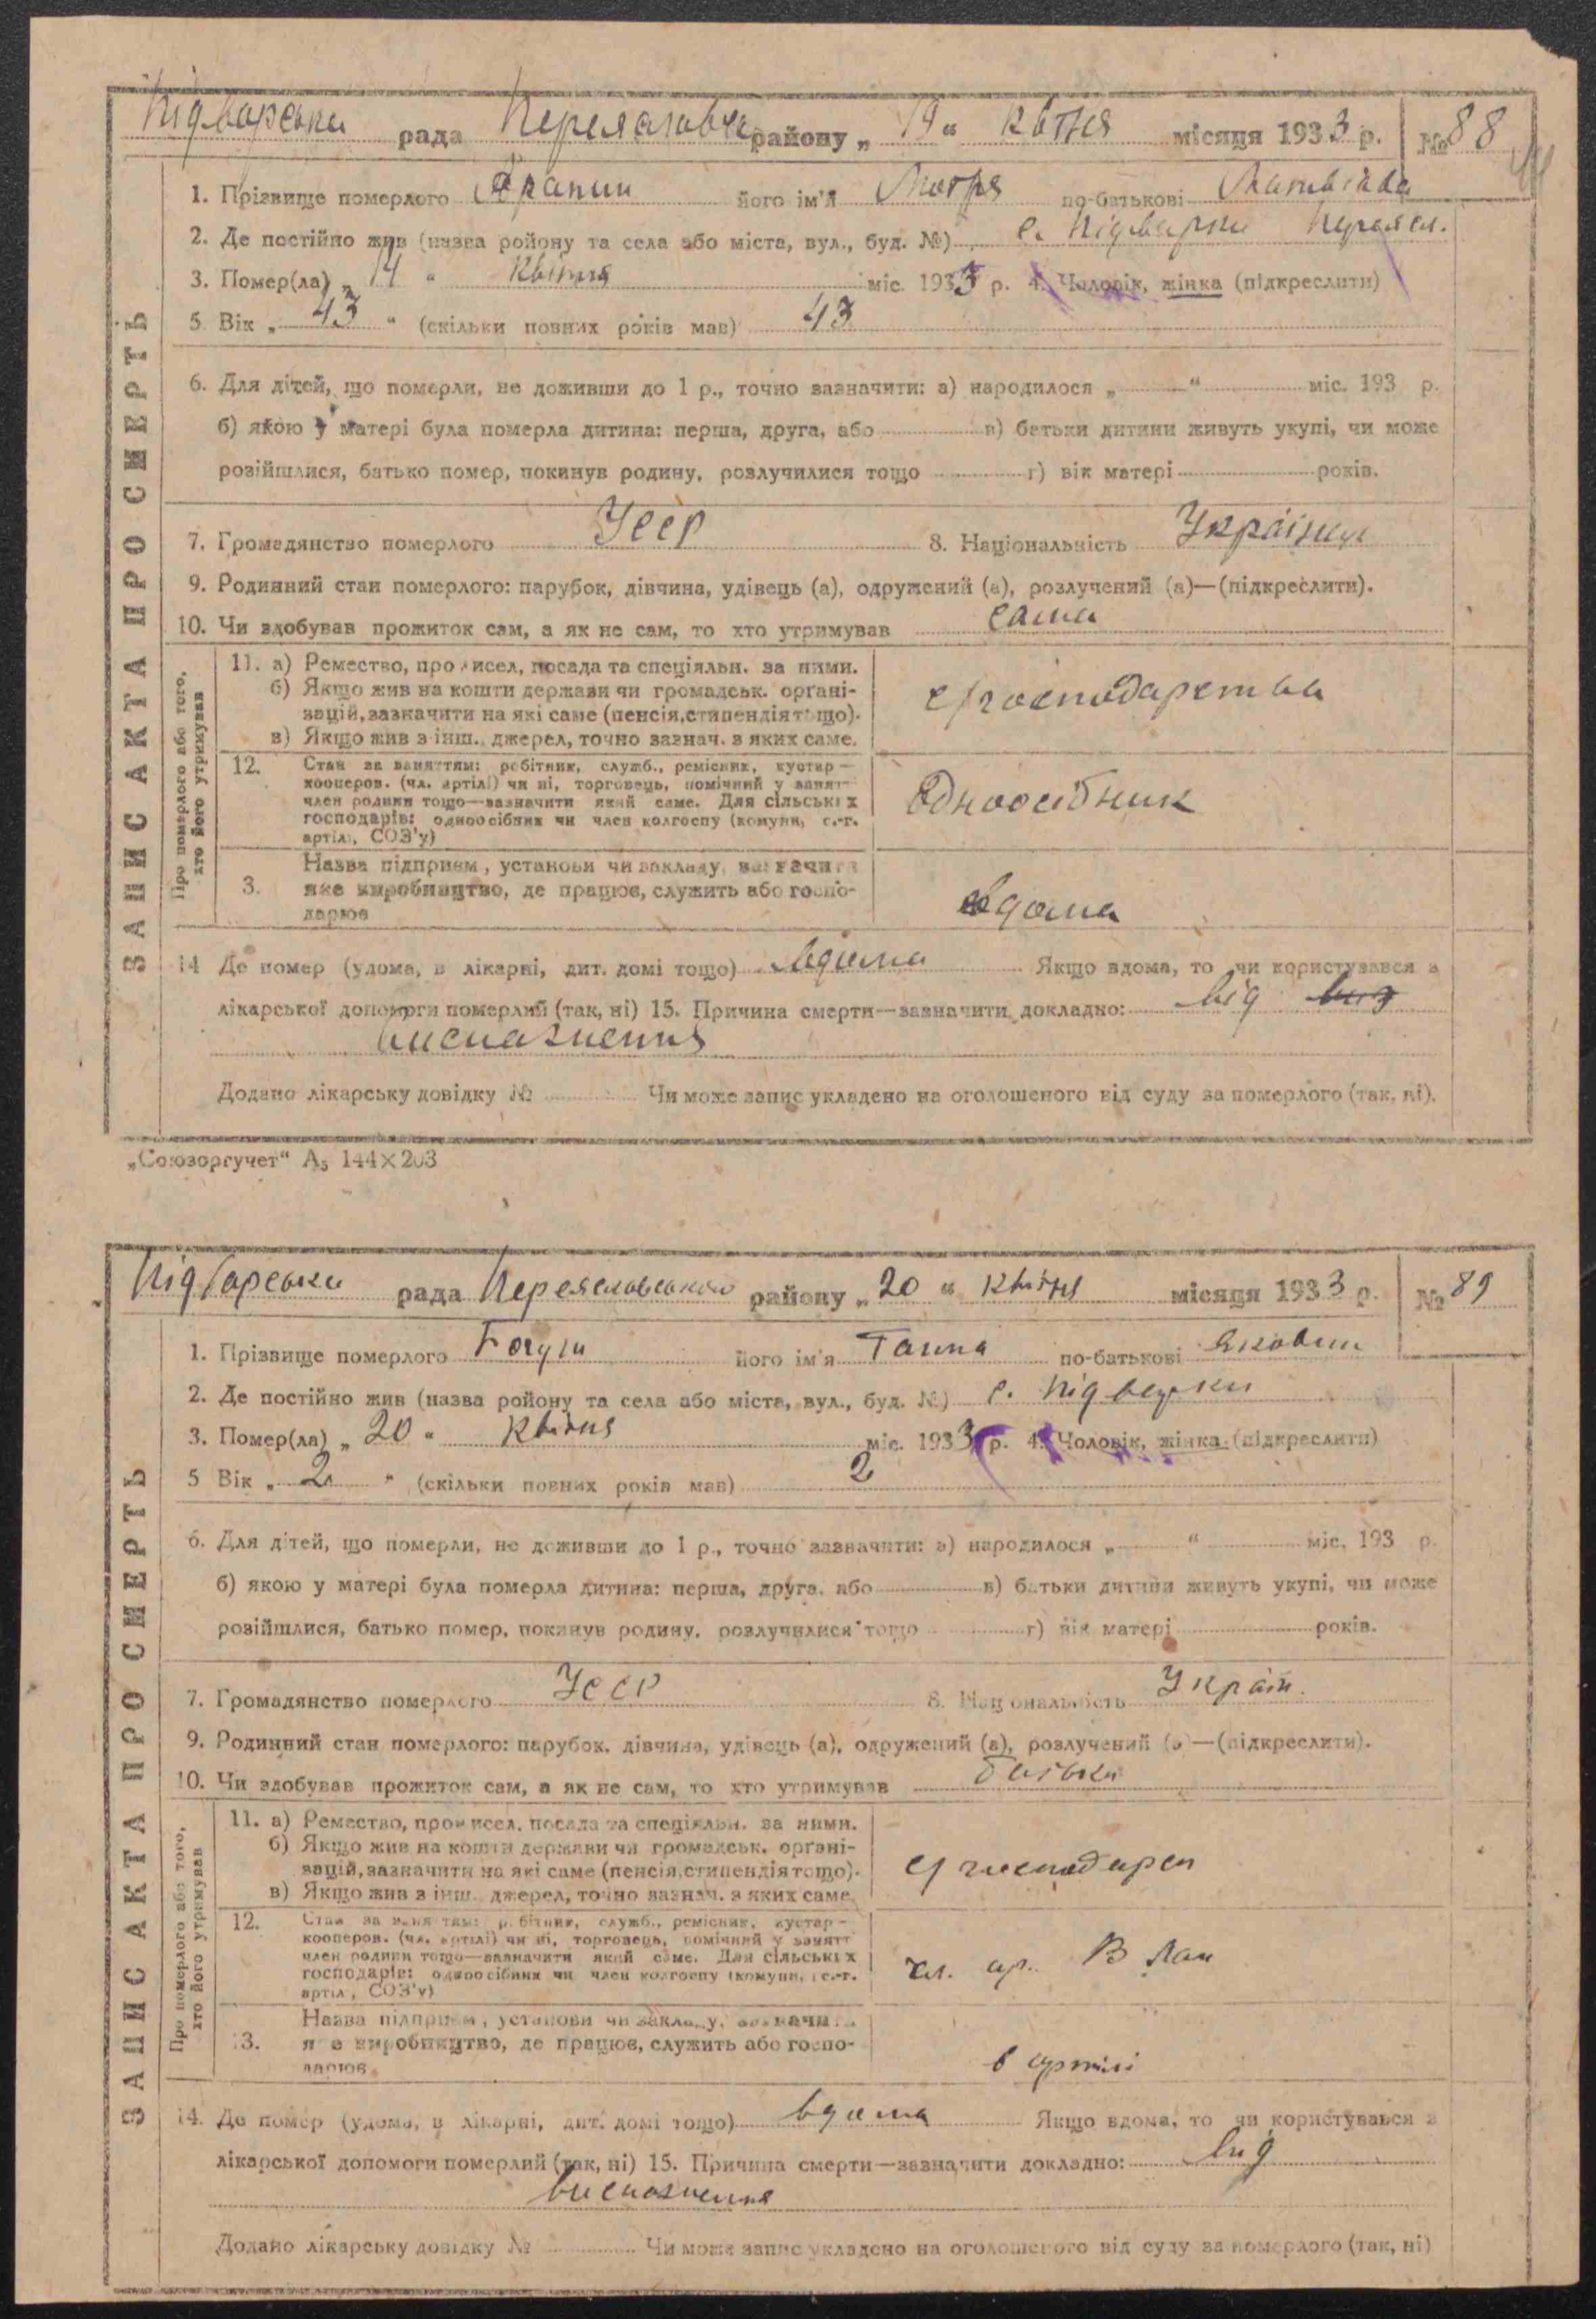 Підварськи рада Переяславськ району „ 19 “ квітня місяця 1933 р. № 88
1. Прізвище померлого його ім'я Мотря по-батькові Матвіївна
2. Де постійно жив (назва ройону та села або міста, вул., буд. №) с. Підварки Переясл.
3. Помер(ла) „ 14 “ Квітня міс. 1933 р. 4. Чоловік, жінка (підкреслити)
5 Вік „ 43 “ (скільки повних років мав) 43
6. Для дітей, що померли, не доживши до 1 р., точно зазначити: а) народилося „ “ міс. 193 р.
б) якою у матері була померла дитина: перша, друга, або в) батьки дитини живуть укупі, чи може
розійшлися, батько помер, покинув родину, розлучилися тощо г) вік матері років.
7. Громадянство померлого Усср 8. Національність Українця
9. Родинний стан померлого: парубок, дівчина, удівець (а), одружений (а), розлучений (а)—(підкреслити).
10. Чи здобував прожиток сам, а як не сам, то хто утримував сама
ЗАПИС АКТА ПРО СМЕРТЬ
Про померлого або того,
хто його утримував
11. а) Ремество, промисел, посада та спеціяльн. за ними.
б) Якщо жив на кошти держави чи громадськ. орґані-
зацій, зазначити на які саме (пенсія, стипендія тощо).
в) Якщо жив з інш., джерел, точно зазнач. з яких саме.
с/господарства
12. Стан за заняттям: робітник, служб., ремісник, кустар —
кооперов. (чл. артілі) чи ні, торговець, помічний у занятт
член родини тощо—зазначити який саме. Для сільських
господарів: одноосібник чи член колгоспу (комуни, с.-г.
артілі, СОЗ'у)
Одноосібник
Назва підприєм, установи чи закладу, зазначити
3. яке виробництво, де працює, служить або госпо-
дарює
вдома
14 Де помер (удома, в лікарні, дит. домі тощо) вдома Якщо вдома, то чи користувався з
лікарської допомоги померлий (так, ні) 15. Причина смерти—зазначити докладно: від
виснаження
Додано лікарську довідку № Чи може запис укладено на оголошеного від суду за померлого (так, ні).
„Союзоргучет“ А₅ 144×203
Підварськи рада Переяславського району „ 20 “ квітня місяця 1933 р. № 89
1. Прізвище померлого його ім'я Ганна по-батькові Яковлн
2. Де постійно жив (назва ройону та села або міста, вул., буд. №) с. Підварки
3. Помер(ла) „ 20 “ Квітня міс. 1933 р. 4. Чоловік, жінка (підкреслити)
5 Вік „ 2 “ (скільки повних років мав) 2
6. Для дітей, що померли, не доживши до 1 р., точно зазначити: а) народилося „ “ міс. 193 р.
б) якою у матері була померла дитина: перша, друга, або в) батьки дитини живуть укупі, чи може
розійшлися, батько помер, покинув родину, розлучилися тощо г) вік матері років.
7. Громадянство померлого Усср 8. Національність Україн.
9. Родинний стан померлого: парубок, дівчина, удівець (а), одружений (а), розлучений (а)—(підкреслити).
10. Чи здобував прожиток сам, а як не сам, то хто утримував батьки
ЗАПИС АКТА ПРО СМЕРТЬ
Про померлого або того,
хто його утримував
11. а) Ремество, промисел, посада та спеціяльн. за ними.
б) Якщо жив на кошти держави чи громадськ. орґані-
зацій, зазначити на які саме (пенсія, стипендія тощо).
в) Якщо жив з інш. джерел, точно зазнач. з яких саме.
с/господарст
12. Стан за заняттям: робітник, служб., ремісник, кустар —
кооперов. (чл. артілі) чи ні, торговець, помічний у занятт
член родини тощо—зазначити який саме. Для сільських
господарів: одноосібник чи член колгоспу (комуни, с.-г.
артіл, СОЗ'у)
чл. ар. В Лан
Назва підприєм, установи чи закладу, зазначити
13. яке виробництво, де працює, служить або госпо-
дарює
в артілі
14. Де помер (удома, в лікарні, дит. домі тощо) вдома Якщо вдома, то чи користувався з
лікарської допомоги померлий (так, ні) 15. Причина смерти—зазначити докладно: від
виснаження
Додано лікарську довідку № Чи може запис укладено на оголошеного від суду за померлого (так, ні)